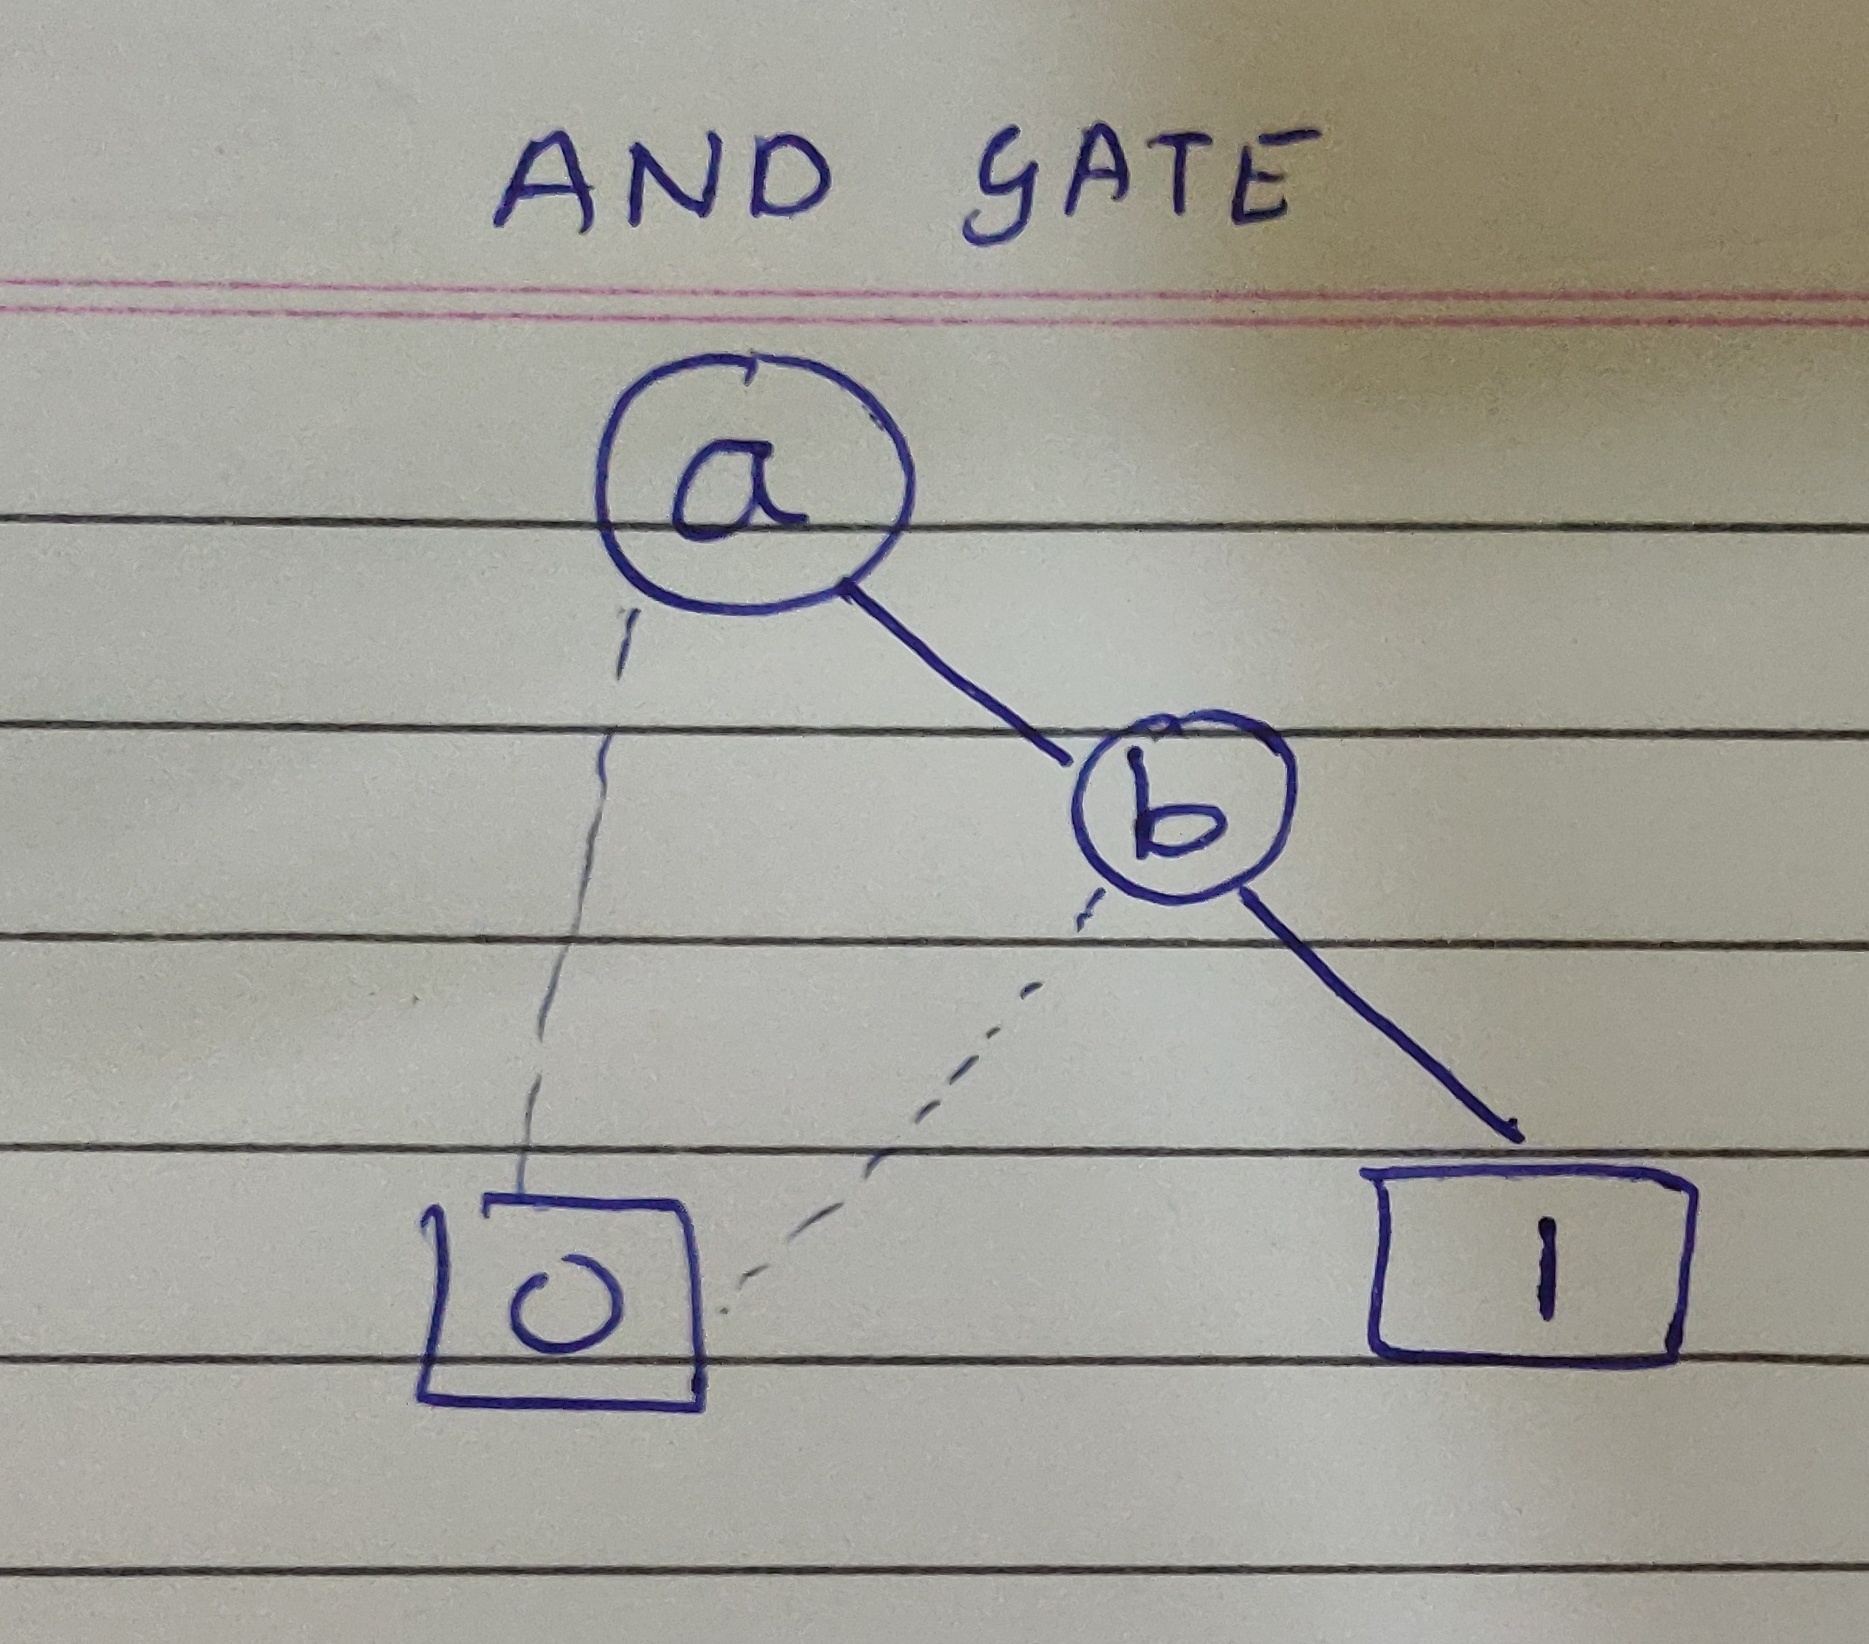 AND GATE
a
b
0
1